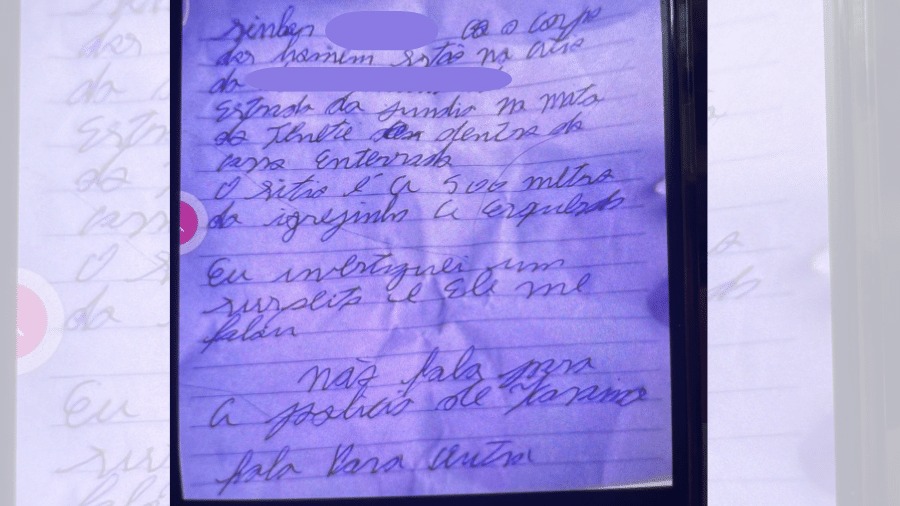 o corpo
dos homem estão na
da
Estrada da jundia na mata
da dentro da
casa Enterrado
O sitio é a 500 metro
da igrejinha a Esquerda
Eu investiguei um
suspeito e Ele me
falou
não fala para
a policia de
fala Para outra